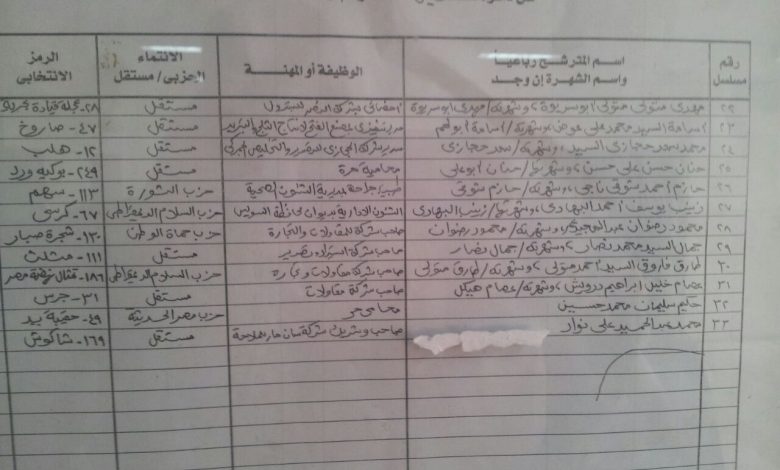 رقم مسلسل | اسم المترشح رباعياً واسم الشهرة إن وجد | الوظيفة أو المهنة | الانتماء الحزبى / مستقل | الرمز الانتخابى
٢٢ | مهدى متولى متولى ابو سريوة وشهرته / مهدى ابو سريوة | اخصائى بشركة النصر للبترول | مستقل | ٢٨ - عجلة قيادة
٢٣ | اسامة السيد محمد على عوض وشهرته / اسامة ابو | مدير تنفيذى بمصنع الفتح لانتاج الثلج | مستقل | ٤٧ - صاروخ
٢٤ | محمد سعد حجازى السيد وشهرته / سعد حجازى | مدير شركة الحجازى للتصدير والتخليص الجمركى | مستقل | ١٢ - هلب
٢٥ | حنان حسن على حسن وشهرتها / حنان ابو على | محامية حرة | مستقل | ٢٤٩ - بوكيه ورد
٢٦ | حازم احمد شوقى ناجى وشهرته / حازم شوقى | طبيب جراحة بمديرية الشئون الصحية | حزب الشورة | ١١٣ - سهم
٢٧ | زينب يوسف احمد البهادى وشهرتها / زينب البهادى | الشئون الادارية بديوان محافظة السويس | حزب السلام الديمقراطى | ٦٧ - كرسى
٢٨ | محمود رضوان عبد وشهرته / محمود رضوان | صاحب شركة للمقاولات والتجارة | حزب حماة الوطن | ١٣٠ - شجرة صبار
٢٩ | جمال السيد محمد نصار وشهرته / جمال نصار | صاحب شركة استيراد وتصدير | مستقل | ١١١ - مثلث
٣٠ | طارق فاروق السيد احمد متولى وشهرته / طارق متولى | صاحب شركة مقاولات وتجارة | حزب السلام الديمقراطى | ١٨٦ - تمثال نهضة مصر
٣١ | عصام خليل ابراهيم درويش وشهرته / عصام هيكل | صاحب شركة مقاولات | مستقل | ٣١ - جرس
٣٢ | حليم سليمان محمد حسين | محامى حر | حزب مصر الحديثة | ٤٩ - حقيبة يد
٣٣ | محمد عبد الحميد على نوار | صاحب وشريك شركة سان مار للملاحة | مستقل | ١٦٩ - شاكوش